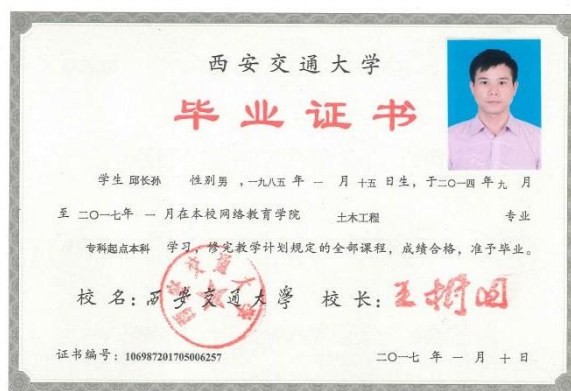 西安交通大学
毕业证书
学生 邱长孙 性别 男 ，一九八五 年 一 月 十五 日生，于二〇一四 年 九 月
至 二〇一七年 一 月在本校网络教育学院 土木工程 专业
专科起点本科 学习，修完教学计划规定的全部课程，成绩合格，准予毕业。
校 名：西安交通大学 校 长：王树国
证书编号：106987201705006257 二〇一七 年 一 月 十 日